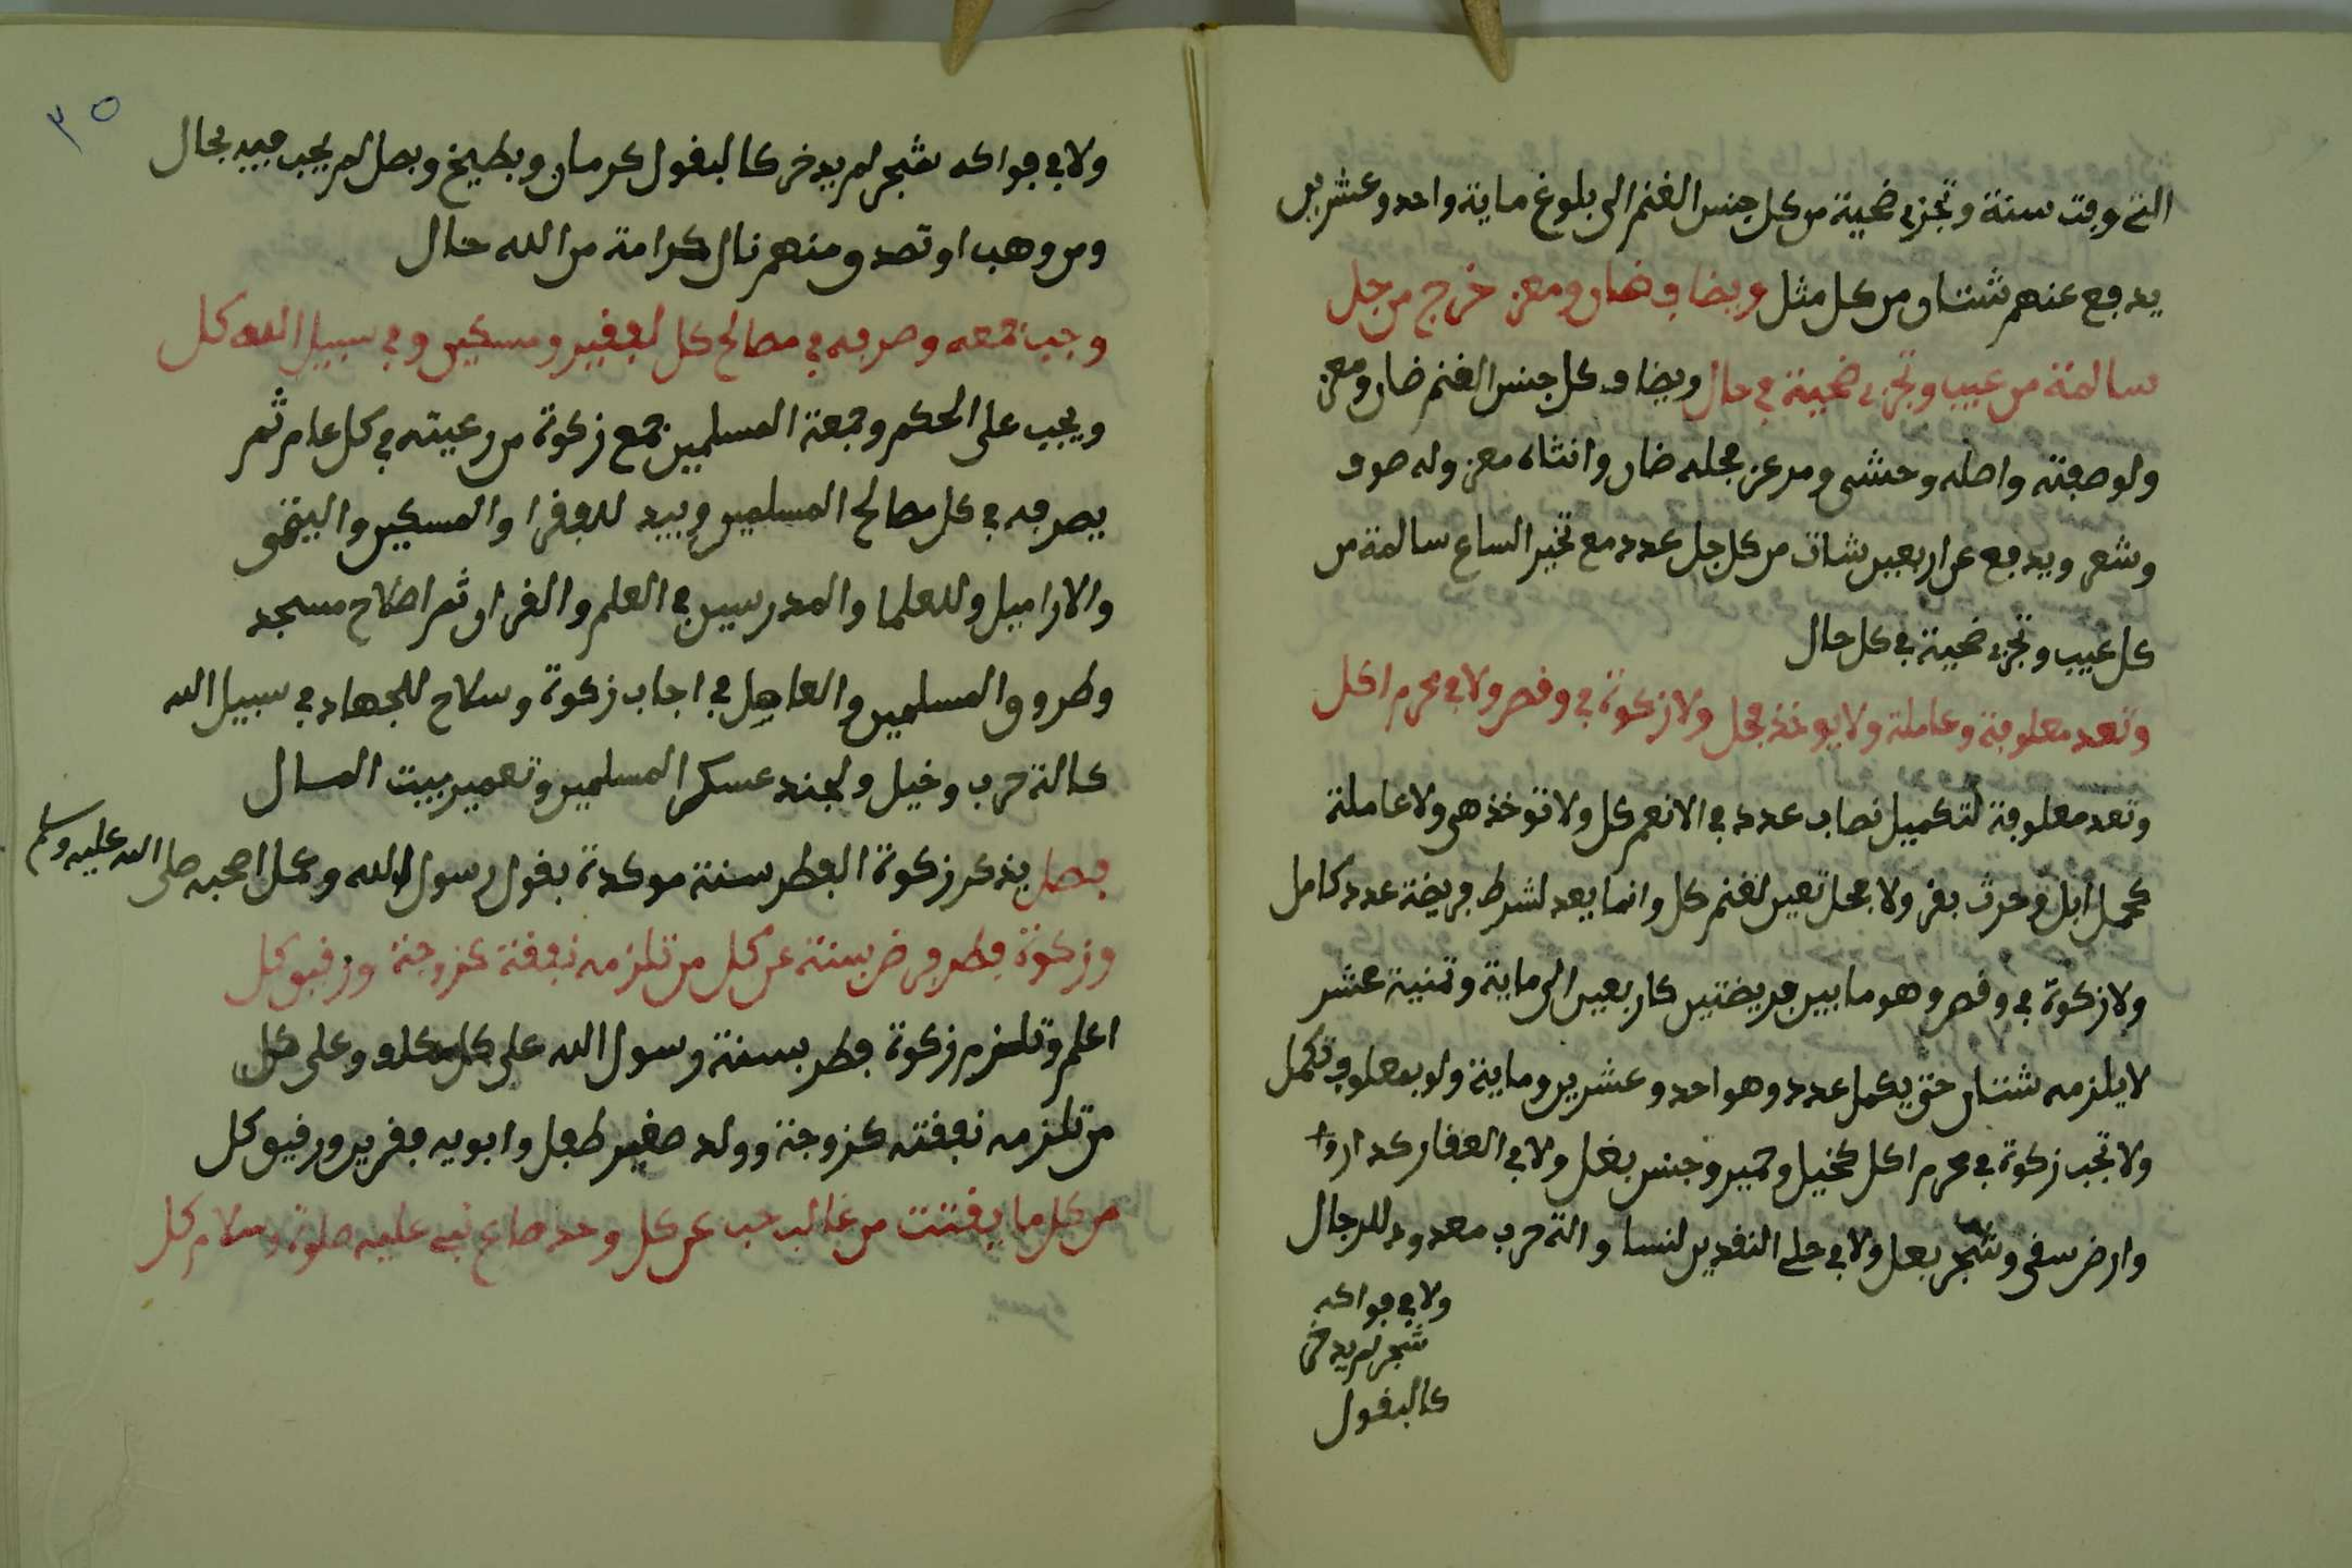 التي وفت سنة وتجزي ضحية من كل جنس الغنم الى بلوغ ماية واحد وعشرين
يدفع عنهم شتان من كل مثل ويضاف ضان ومعز خرج من جل
سالمة من عيب وتجزي ضحية في حال ويضاف كل جنس الغنم ضان ومعز
ولو صفته واصله وحشي ومرعز مجله ضان وانثاه معز وله صوف
وشعر ويدفع عن اربعين شات من كل جل عدد مع تخير الساع سالمة من
كل عيب وتجزي ضحية في كل حال
وتعد معلوفة وعاملة ولا يوخذ فحل ولا زكوة في وقص ولا في محرم اكل
وتعد معلوفة لتكميل نصاب عدد في الانعم كل ولا توخذ هي ولا عاملة
كحمل ابل وحرث بقر ولا فحل تعين لغنم كل وانما يعد لشرط فريضة عدد كامل
ولا زكوة في وقص وهو ما بين فريضتين كاربعين الى ماية وتمنية عشر
لا يلزمه شتان حتى يكمل عدد وهو احد وعشرين وماية ولو بمعلوف تكمل
ولا تجب زكوة في محرم اكل كخيل وحمير وجنس بغل ولا في العقار كدار و
وارض سقي وشجر بعل ولا في حلي النقدين لنسا والة حرب معدود للرجال
ولا في فواكه
شجر لم يدخر
كالبقول
٣٥
ولا في فواكه شجر لم يدخر كالبقول كرمان وبطيخ وبصل لم يجب فيه بحال
ومن وهب او تصدق منهم نال كرامة من الله حال
وجب جمعه وصرفه في مصالح كل لفقير ومسكين وفي سبيل الله كل
ويجب على الحكم وجمعة المسلمين جمع زكوة من رعيته في كل عام ثم
يصرفه في كل مصالح المسلمين وبيد للفقرا والمسكين واليتمى
والاراميل وللعلما والمدرسين في العلم والقران ثم اصلاح مسجد
وطروق المسلمين والعاهل في اجاب زكوة وسلاح للجهاد في سبيل الله
كالة حرب وخيل ولجند عسكر المسلمين وتعمير بيت المال
فصل يذكر زكوة الفطر سنة موكدة بقول رسول الله وعمل اصحبه صلى الله عليه وسلم
وزكوة فطر فرض بسنة عن كل من تلزمه نفقة كزوجة ورفيق كل
اعلم وتلزم زكوة فطر بسنة رسول الله على كل مكلف وعلى كل
من تلزمه نفقته كزوجة وولد صغير طفل وابويه فقرين ورفيق كل
من كل ما يقتت من غالب حب عن كل وحد صاع نبي عليه صلوة وسلام كل